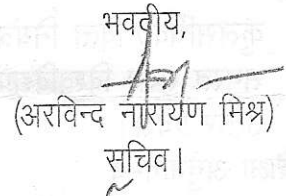 भवदीय,
(अरविन्द नारायण मिश्र)
सचिव।